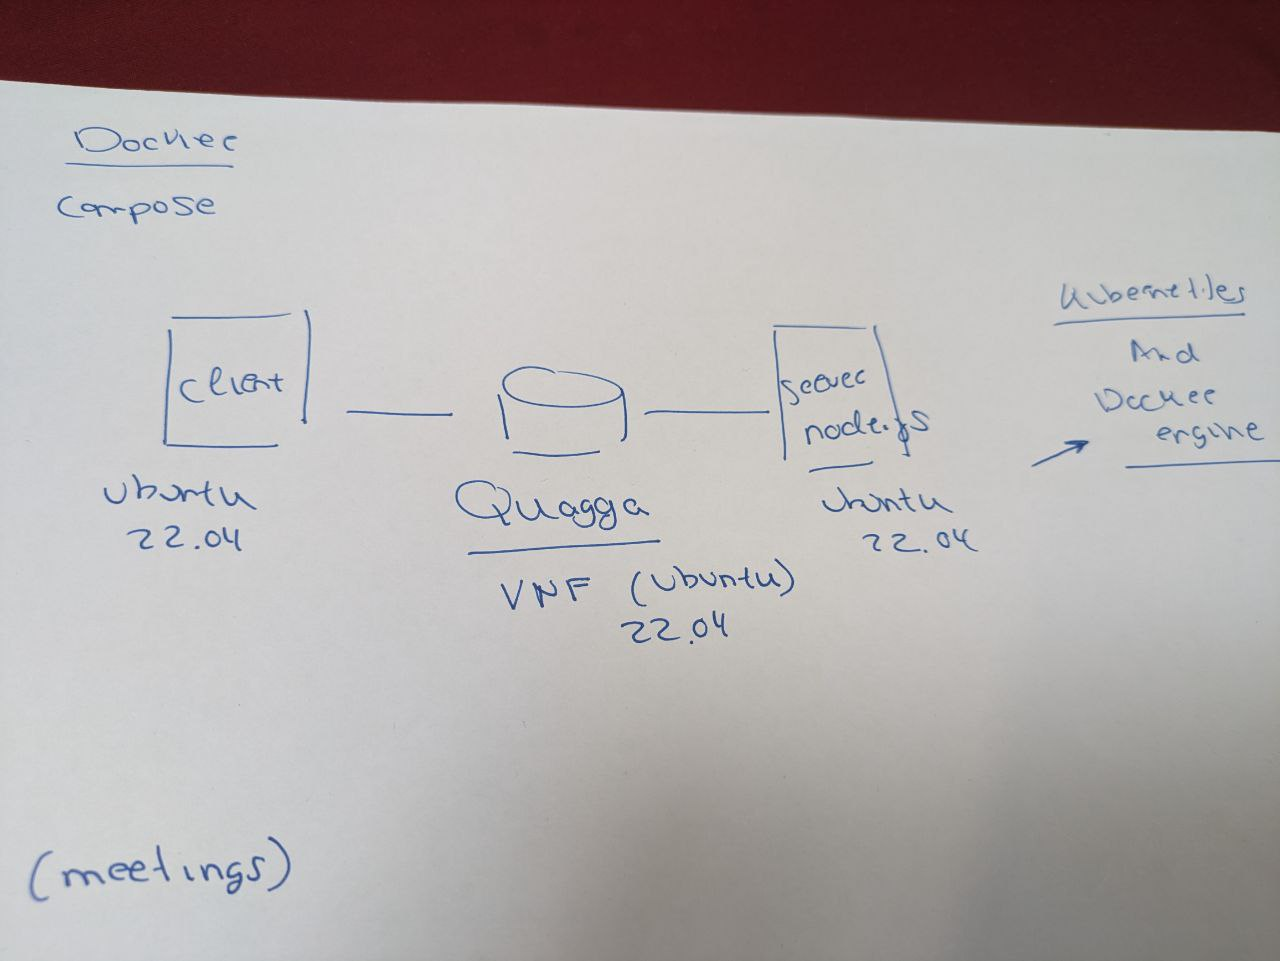 Docker
compose
client
ubuntu
22.04
Quagga
VNF (ubuntu)
22.04
server
node.js
ubuntu
22.04
Kubernetles
And
Docker
engine
(meetings)